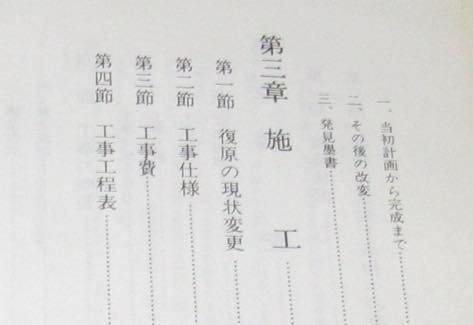 一、当初計画から完成まで
二、その後の改変
三、発見墨書
第三章 施工
第一節 復原の現状変更
第二節 工事仕様
第三節 工事費
第四節 工事工程表